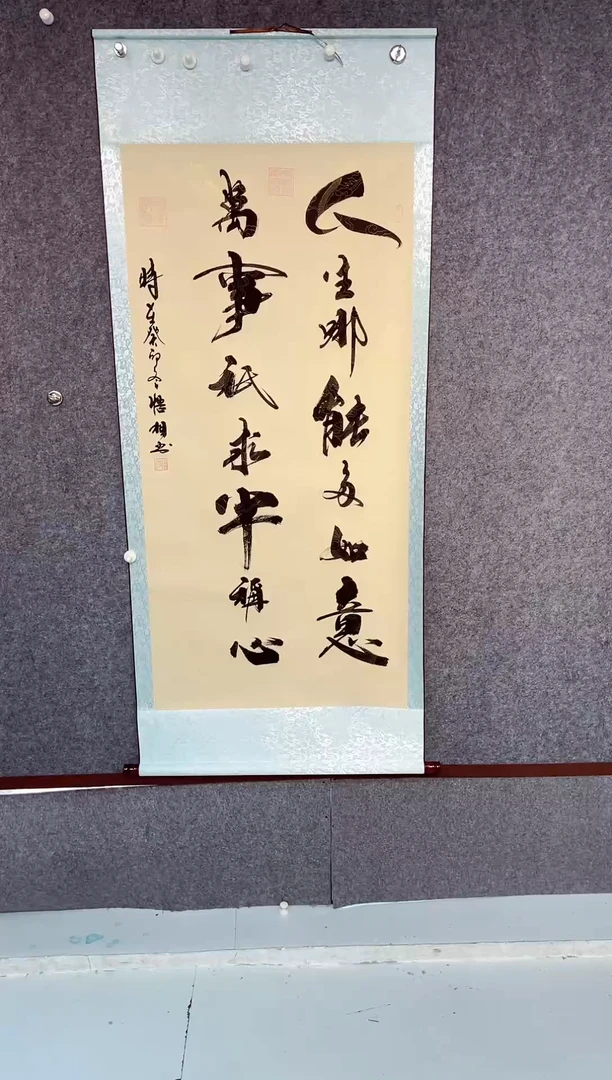 人生哪能多如意
萬事祇求半稱心
時在癸卯冬悟相书